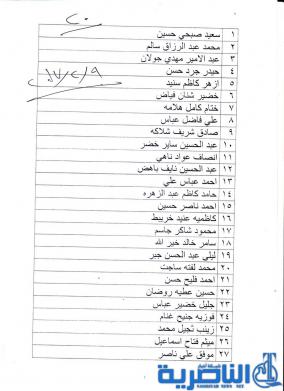 ١ سعيد صبحي حسين
٢ محمد عبد الرزاق سالم
٣ عبد الامير مهدي جولان
٤ حيدر جرد حسن
٥ ازهر كاظم سنيد
٦ خضير شنان فياض
٧ ختام كامل هلامه
٨ علي فاضل عباس
٩ صادق شريف شلاكه
١٠ عبد الحسين ساير خضر
١١ انصاف عواد ناهي
١٢ عبد الحسين نايف باهض
١٣ احمد عباس علي
١٤ حامد كاظم عبد الزهره
١٥ احمد ناصر حسين
١٦ كاظميه عنيد خريبط
١٧ محمود شاكر جاسم
١٨ سامر خالد خير الله
١٩ ليلى عبد الحسن جبر
٢٠ محمد لفته ساجت
٢١ احمد فليح حسن
٢٢ حسين عطيه روضان
٢٣ جليل خضير عباس
٢٤ فوزيه جنيح غنام
٢٥ زينب ثجيل محمد
٢٦ ميثم فتاح اسماعيل
٢٧ موفق علي ناصر
الناصرية